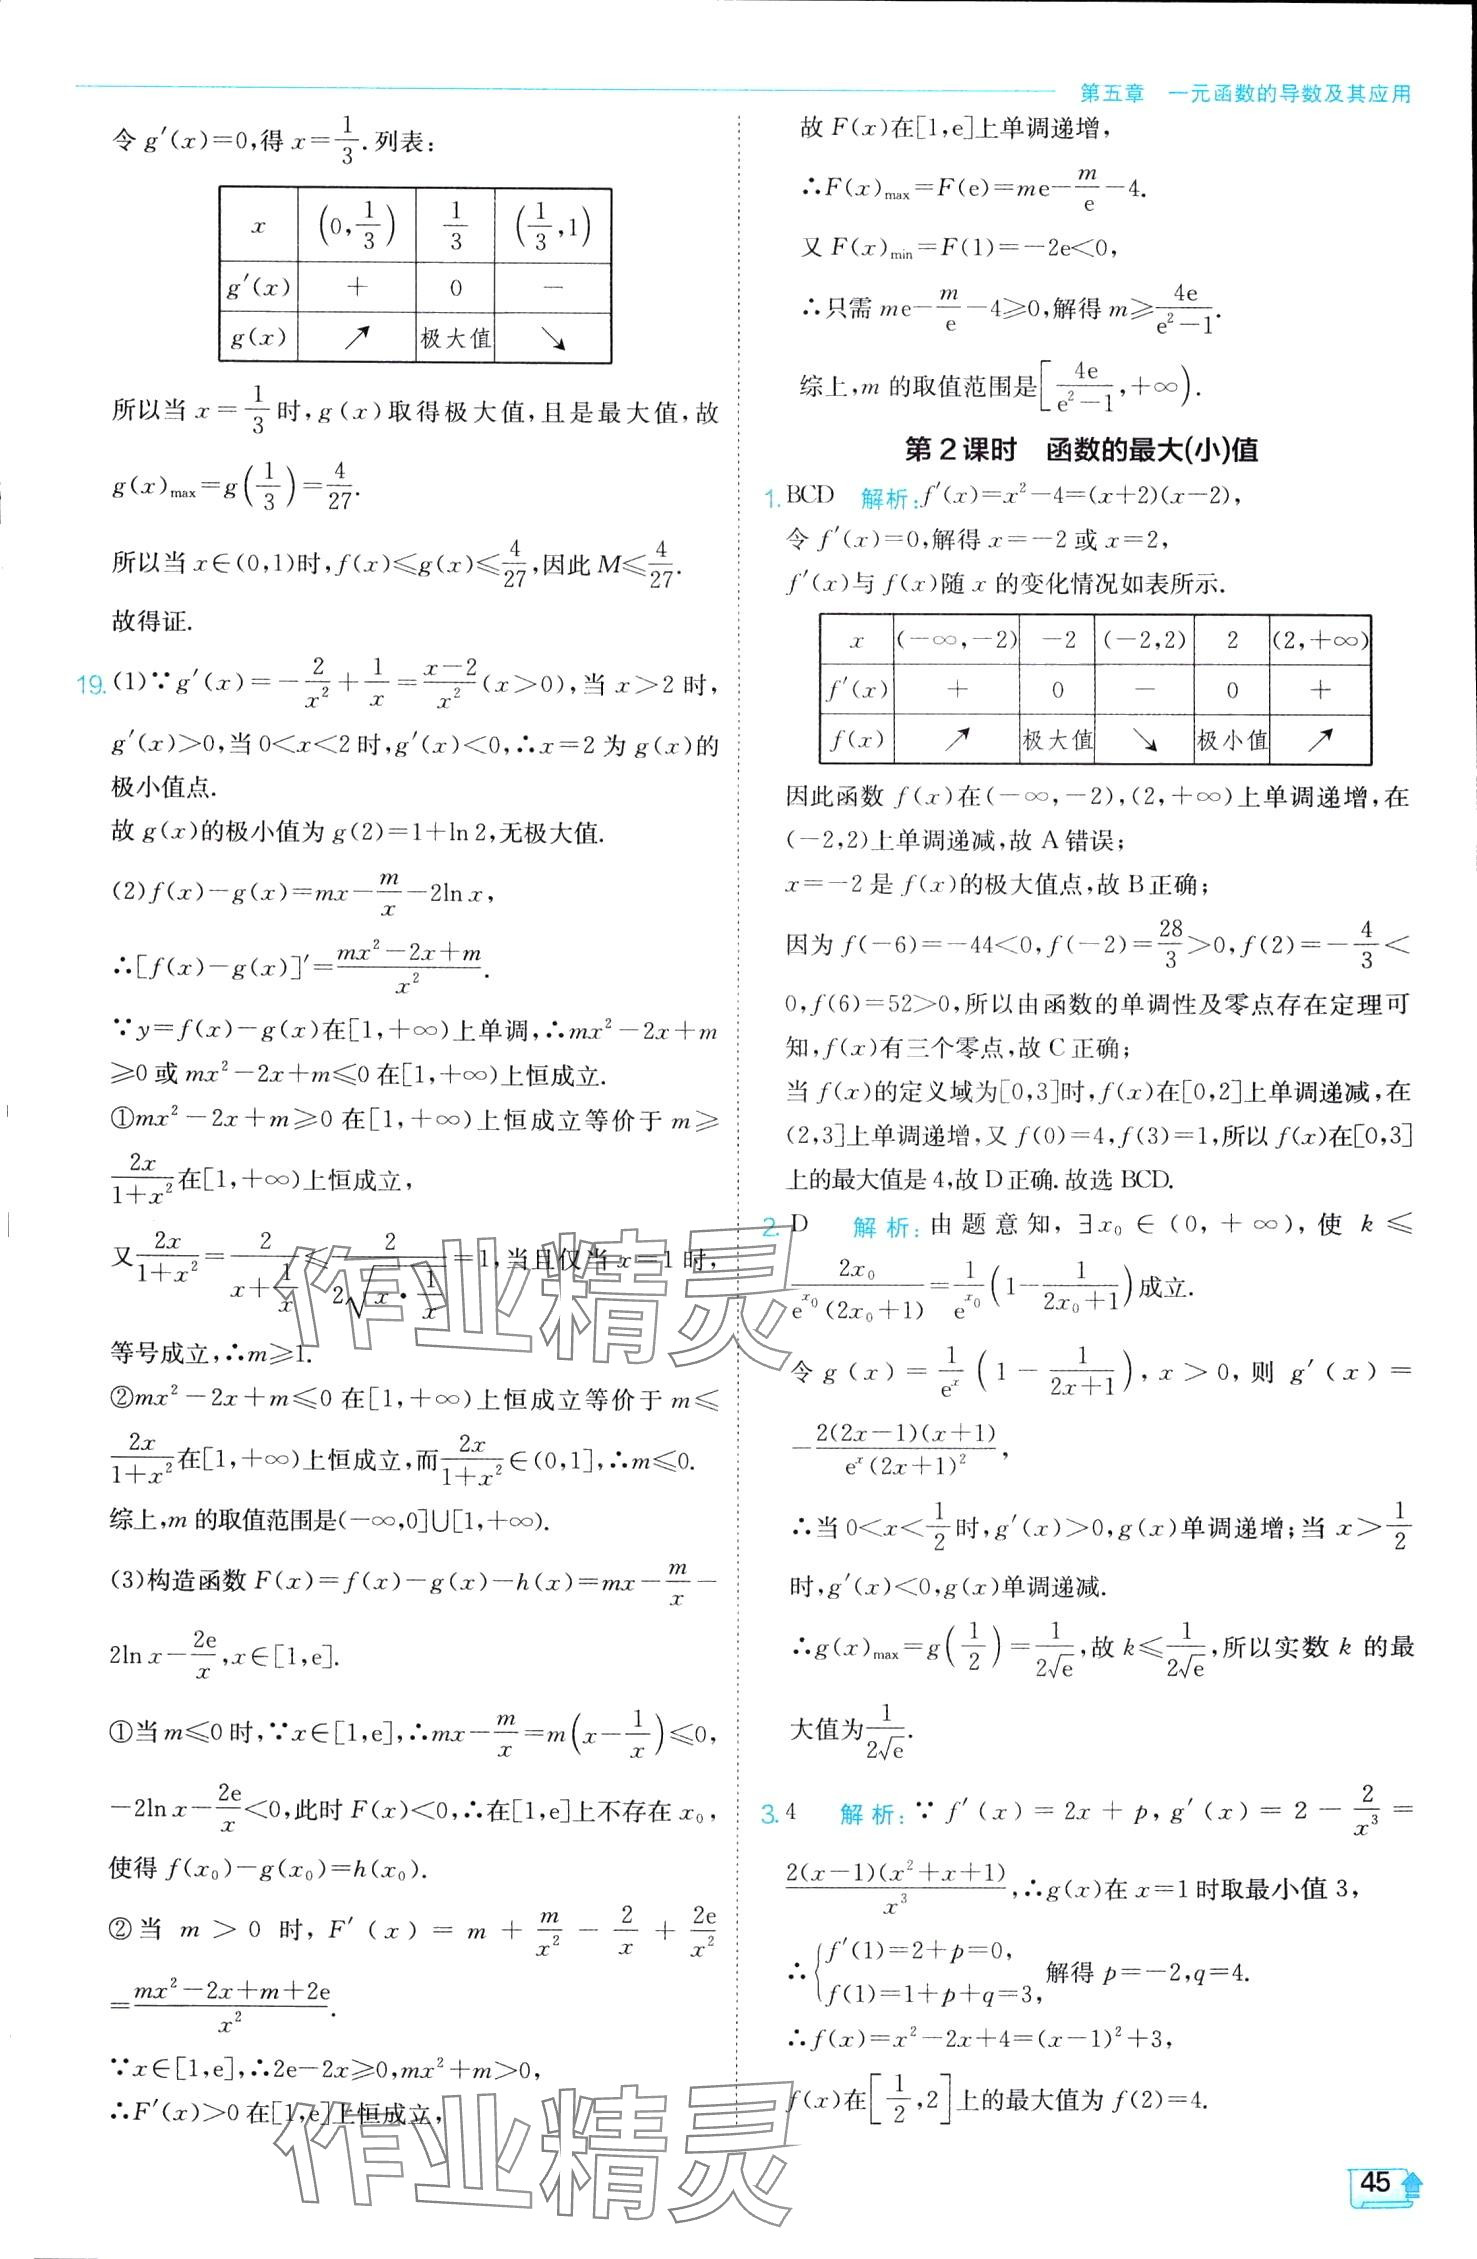 第五章 一元函数的导数及其应用
令 g′(x)=0,得 x=1/3.列表:
x (0,1/3) 1/3 (1/3,1)
g′(x) + 0 −
g(x) ↗ 极大值 ↘
所以当 x=1/3 时,g(x)取得极大值,且是最大值,故
g(x)max=g(1/3)=4/27.
所以当 x∈(0,1)时,f(x)≤g(x)≤4/27,因此 M≤4/27.
故得证.
19. (1)∵g′(x)=−2/x²+1/x=(x−2)/x²(x>0),当 x>2 时,
g′(x)>0,当 0<x<2 时,g′(x)<0,∴x=2 为 g(x)的
极小值点.
故 g(x)的极小值为 g(2)=1+ln 2,无极大值.
(2)f(x)−g(x)=mx−m/x−2ln x,
∴[f(x)−g(x)]′=(mx²−2x+m)/x².
∵y=f(x)−g(x)在[1,+∞)上单调,∴mx²−2x+m
≥0 或 mx²−2x+m≤0 在[1,+∞)上恒成立.
①mx²−2x+m≥0 在[1,+∞)上恒成立等价于 m≥
2x/(1+x²)在[1,+∞)上恒成立,
又2x/(1+x²)=2/(x+1/x)≤2/(2√(x·1/x))=1,当且仅当 x=1 时,
等号成立,∴m≥1.
②mx²−2x+m≤0 在[1,+∞)上恒成立等价于 m≤
2x/(1+x²)在[1,+∞)上恒成立,而2x/(1+x²)∈(0,1],∴m≤0.
综上,m 的取值范围是(−∞,0]∪[1,+∞).
(3)构造函数 F(x)=f(x)−g(x)−h(x)=mx−m/x−
2ln x−2e/x,x∈[1,e].
①当 m≤0 时,∵x∈[1,e],∴mx−m/x=m(x−1/x)≤0,
−2ln x−2e/x<0,此时 F(x)<0,∴在[1,e]上不存在 x₀,
使得 f(x₀)−g(x₀)=h(x₀).
②当 m>0 时,F′(x)=m+m/x²−2/x+2e/x²
=(mx²−2x+m+2e)/x².
∵x∈[1,e],∴2e−2x≥0,mx²+m>0,
∴F′(x)>0 在[1,e]上恒成立,
故 F(x)在[1,e]上单调递增,
∴F(x)max=F(e)=me−m/e−4.
又 F(x)min=F(1)=−2e<0,
∴只需 me−m/e−4≥0,解得 m≥4e/(e²−1).
综上,m 的取值范围是[4e/(e²−1),+∞).
第2课时 函数的最大(小)值
1. BCD 解析:f′(x)=x²−4=(x+2)(x−2),
令 f′(x)=0,解得 x=−2 或 x=2,
f′(x)与 f(x)随 x 的变化情况如表所示.
x (−∞,−2) −2 (−2,2) 2 (2,+∞)
f′(x) + 0 − 0 +
f(x) ↗ 极大值 ↘ 极小值 ↗
因此函数 f(x)在(−∞,−2),(2,+∞)上单调递增,在
(−2,2)上单调递减,故 A 错误;
x=−2 是 f(x)的极大值点,故 B 正确;
因为 f(−6)=−44<0,f(−2)=28/3>0,f(2)=−4/3<
0,f(6)=52>0,所以由函数的单调性及零点存在定理可
知,f(x)有三个零点,故 C 正确;
当 f(x)的定义域为[0,3]时,f(x)在[0,2]上单调递减,在
(2,3]上单调递增,又 f(0)=4,f(3)=1,所以 f(x)在[0,3]
上的最大值是 4,故 D 正确.故选 BCD.
2. D 解析:由题意知,∃x₀∈(0,+∞),使 k≤
2x₀/(e^x₀(2x₀+1))=1/e^x₀(1−1/(2x₀+1))成立.
令 g(x)=1/eˣ(1−1/(2x+1)),x>0,则 g′(x)=
−2(2x−1)(x+1)/(eˣ(2x+1)²),
∴当 0<x<1/2 时,g′(x)>0,g(x)单调递增;当 x>1/2
时,g′(x)<0,g(x)单调递减.
∴g(x)max=g(1/2)=1/(2√e),故 k≤1/(2√e),所以实数 k 的最
大值为1/(2√e).
3. 4 解析:∵f′(x)=2x+p,g′(x)=2−2/x³=
2(x−1)(x²+x+1)/x³,∴g(x)在 x=1 时取最小值 3,
∴{f′(1)=2+p=0,
f(1)=1+p+q=3, 解得 p=−2,q=4.
∴f(x)=x²−2x+4=(x−1)²+3,
f(x)在[1/2,2]上的最大值为 f(2)=4.
作业精灵
作业精灵
45